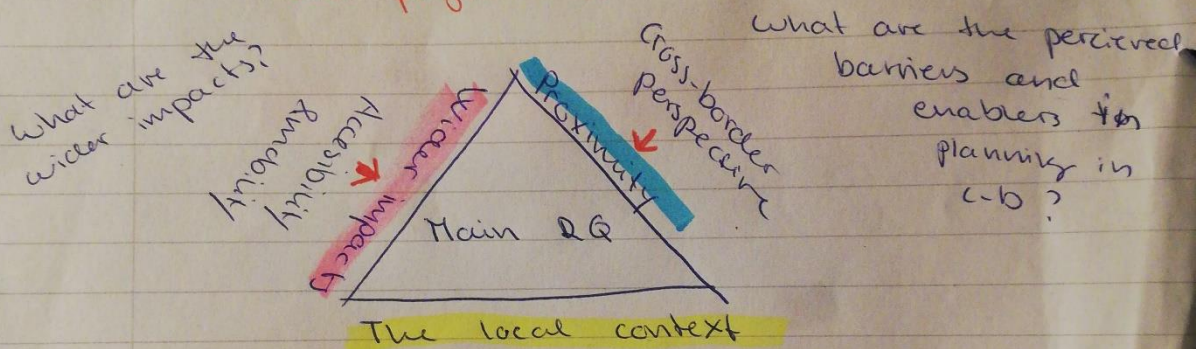 What are the
wider impacts?
Accesibility
& mobility
Wider impacts
Main RQ
Proximity
Cross-border
perspective
What are the percieved
barriers and
enablers in
planning in
c-b?
The local context